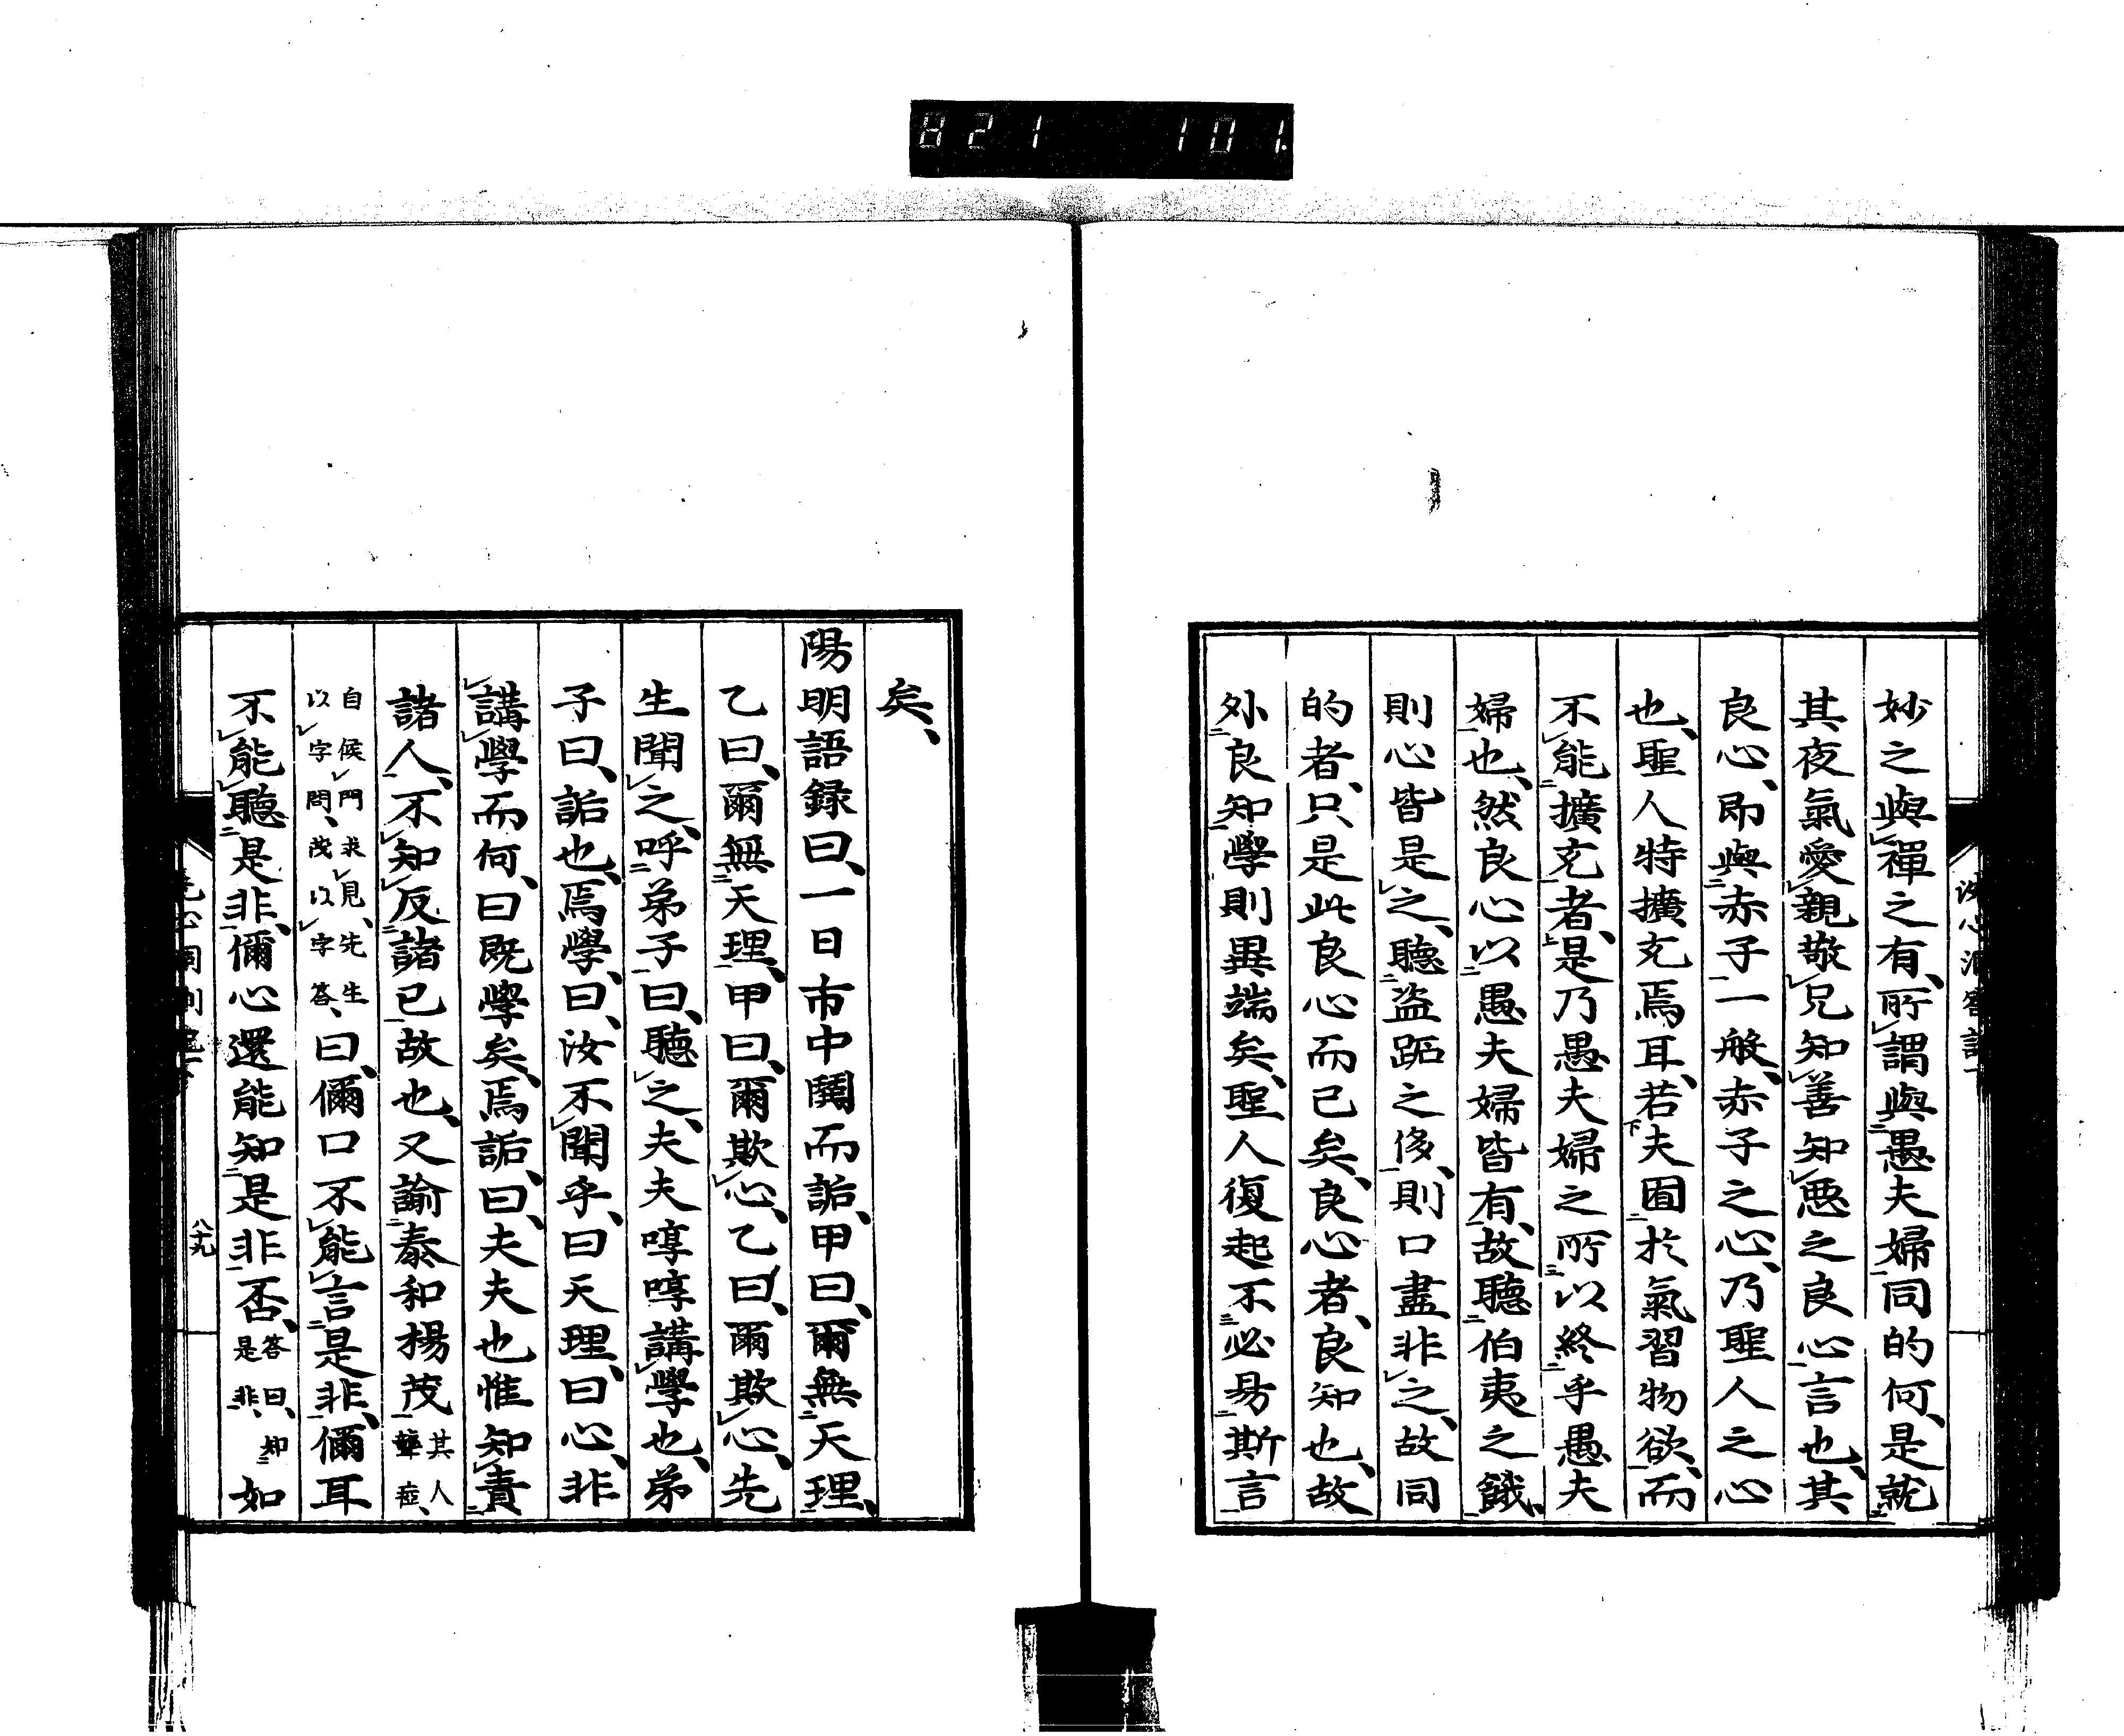 821 101.
妙之與禪之有、所謂與愚夫婦同的何、是就
其夜氣愛親敬兄知善知惡之良心言也、其
良心、即與赤子一般、赤子之心、乃聖人之心
也、聖人特擴充焉耳、若夫囿於氣習物欲、而
不能擴充者、是乃愚夫婦之所以終乎愚夫
婦也、然良心以愚夫婦皆有、故聽伯夷之餓、
則心皆是之、聽盜跖之侈、則口盡非之、故同
的者、只是此良心而已矣、良心者、良知也、故
外良知學則異端矣、聖人復起不必易斯言
矣、
陽明語錄曰、一日市中鬨而詬、甲曰、爾無天理、
乙曰、爾無天理、甲曰、爾欺心、乙曰、爾欺心、先
生聞之、呼弟子曰、聽之、夫夫啍啍講學也、弟
子曰、詬也、焉學、曰、汝不聞乎、曰天理、曰心、非
講學而何、曰既學矣、焉詬、曰、夫夫也惟知責
諸人、不知反諸己故也、又諭泰和楊茂其人聾瘂、
自候門求見、先生以字問、茂以字答、曰、儞口不能言是非、儞耳
不能聽是非、儞心還能知是非否、答曰、知是非、如
八十九